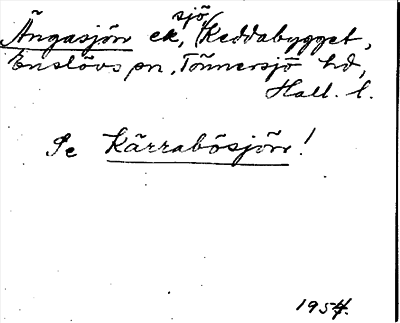 Ängasjön ek, sjö, Keddabygget,
Enslövs sn, Tönnersjö hd,
Hall. l.
Se Kärrabösjön!
1954.